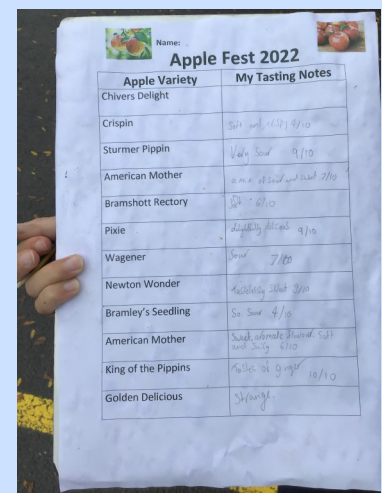 Name:
Apple Fest 2022
Apple Variety My Tasting Notes
Chivers Delight
Crispin Soft and crispy 9/10
Sturmer Pippin Very Sour 9/10
American Mother a mix of sour and sweet 7/10
Bramshott Rectory Soft 6/10
Pixie 9/10
Wagener Sour 7/10
Newton Wonder
Bramley's Seedling So Sour 4/10
American Mother Sweet, aromatic flavour. Soft
and Juicy 6/10
King of the Pippins Tastes of ginger 10/10
Golden Delicious Strange.